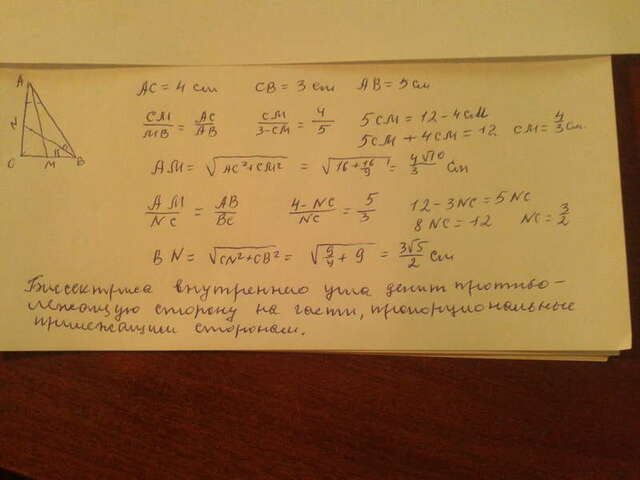 AC = 4 cm CB = 3 cm AB = 5 cm
A
N
C M B
CM/MB = AC/AB CM/3-CM = 4/5 5CM = 12 - 4CM
5CM + 4CM = 12 CM = 4/3 cm.
AM = √AC²+CM² = √16+16/9 = 4√10/3 cm
AM/NC = AB/BC 4-NC/NC = 5/3 12 - 3NC = 5NC
8NC = 12 NC = 3/2
BN = √CN²+CB² = √9/4+9 = 3√5/2 cm
Биссектриса внутреннего угла делит противо-
лежащую сторону на части, пропорциональные
прилежащим сторонам.